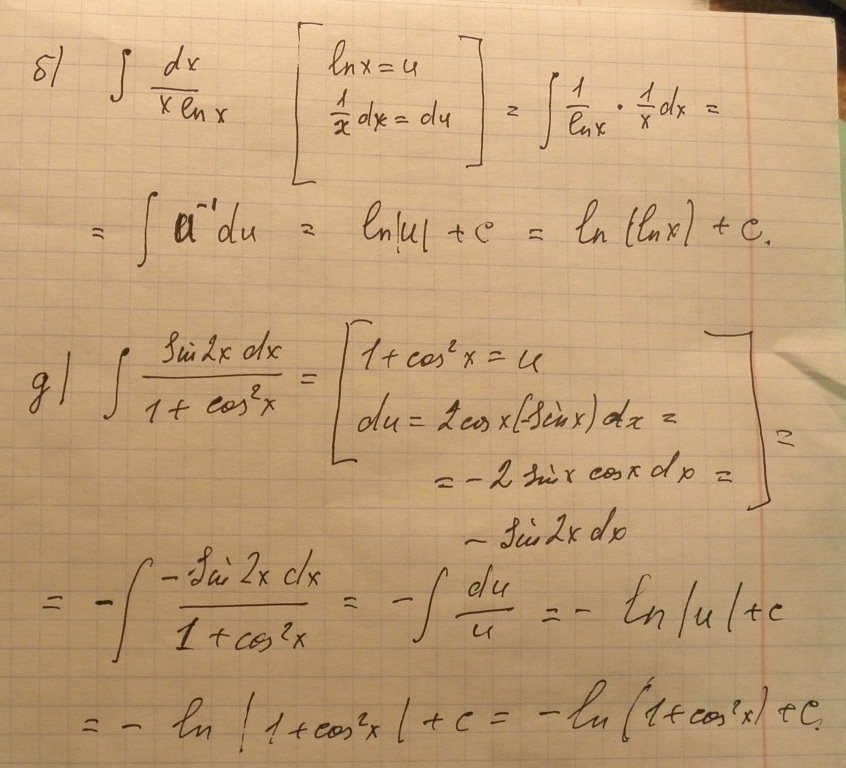 б) ∫ dx / (x ln x) [ ln x = u
1/x dx = du ] = ∫ 1/ln x · 1/x dx =
= ∫ u⁻¹ du = ln|u| + c = ln (ln x) + c.
д) ∫ sin 2x dx / (1 + cos²x) = [ 1 + cos²x = u
du = 2cos x(-sin x) dx =
= - 2 sin x cos x dx = ] =
- sin 2x dx
= - ∫ -sin 2x dx / (1 + cos²x) = - ∫ du/u = - ln |u| + c
= - ln |1 + cos²x| + c = -ln (1 + cos²x) + c.